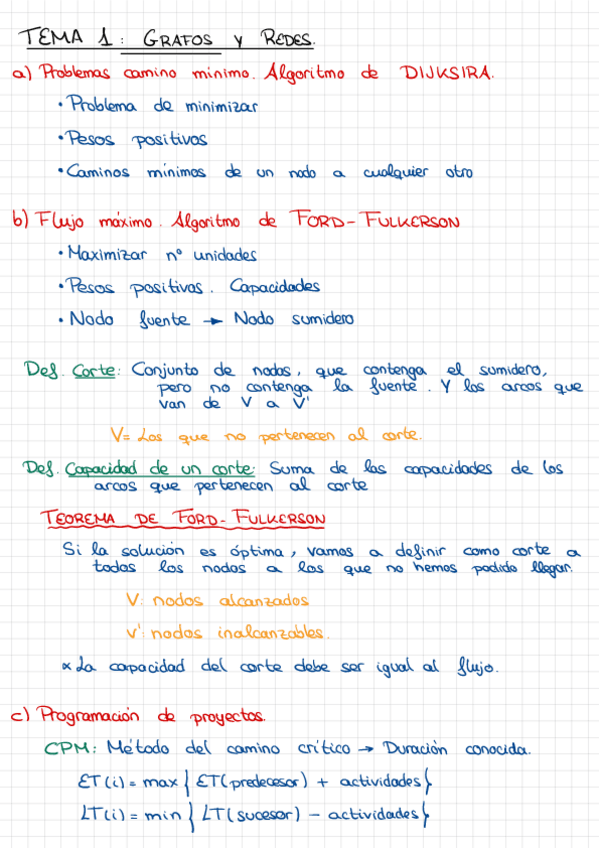 TEMA 1: GRAFOS y REDES.
a) Problemas camino mínimo. Algoritmo de DIJKSIRA.
• Problema de minimizar
• Pesos positivos
• Caminos mínimos de un nodo a cualquier otro
b) Flujo máximo. Algoritmo de FORD-FULKERSON
• Maximizar nº unidades
• Pesos positivos. Capacidades
• Nodo fuente → Nodo sumidero
Def. Corte: Conjunto de nodos, que contenga el sumidero,
pero no contenga la fuente. Y los arcos que
van de V a V'
V= Los que no pertenecen al corte.
Def. Capacidad de un corte: Suma de las capacidades de los
arcos que pertenecen al corte
TEOREMA DE FORD-FULKERSON
Si la solución es óptima, vamos a definir como corte a
todos los nodos a los que no hemos podido llegar.
V: nodos alcanzados
V': nodos inalcanzables.
* La capacidad del corte debe ser igual al flujo.
c) Programación de proyectos.
CPM: Método del camino crítico → Duración conocida.
ET(i) = max { ET(predecesor) + actividades }
LT(i) = min { LT(sucesor) - actividades }